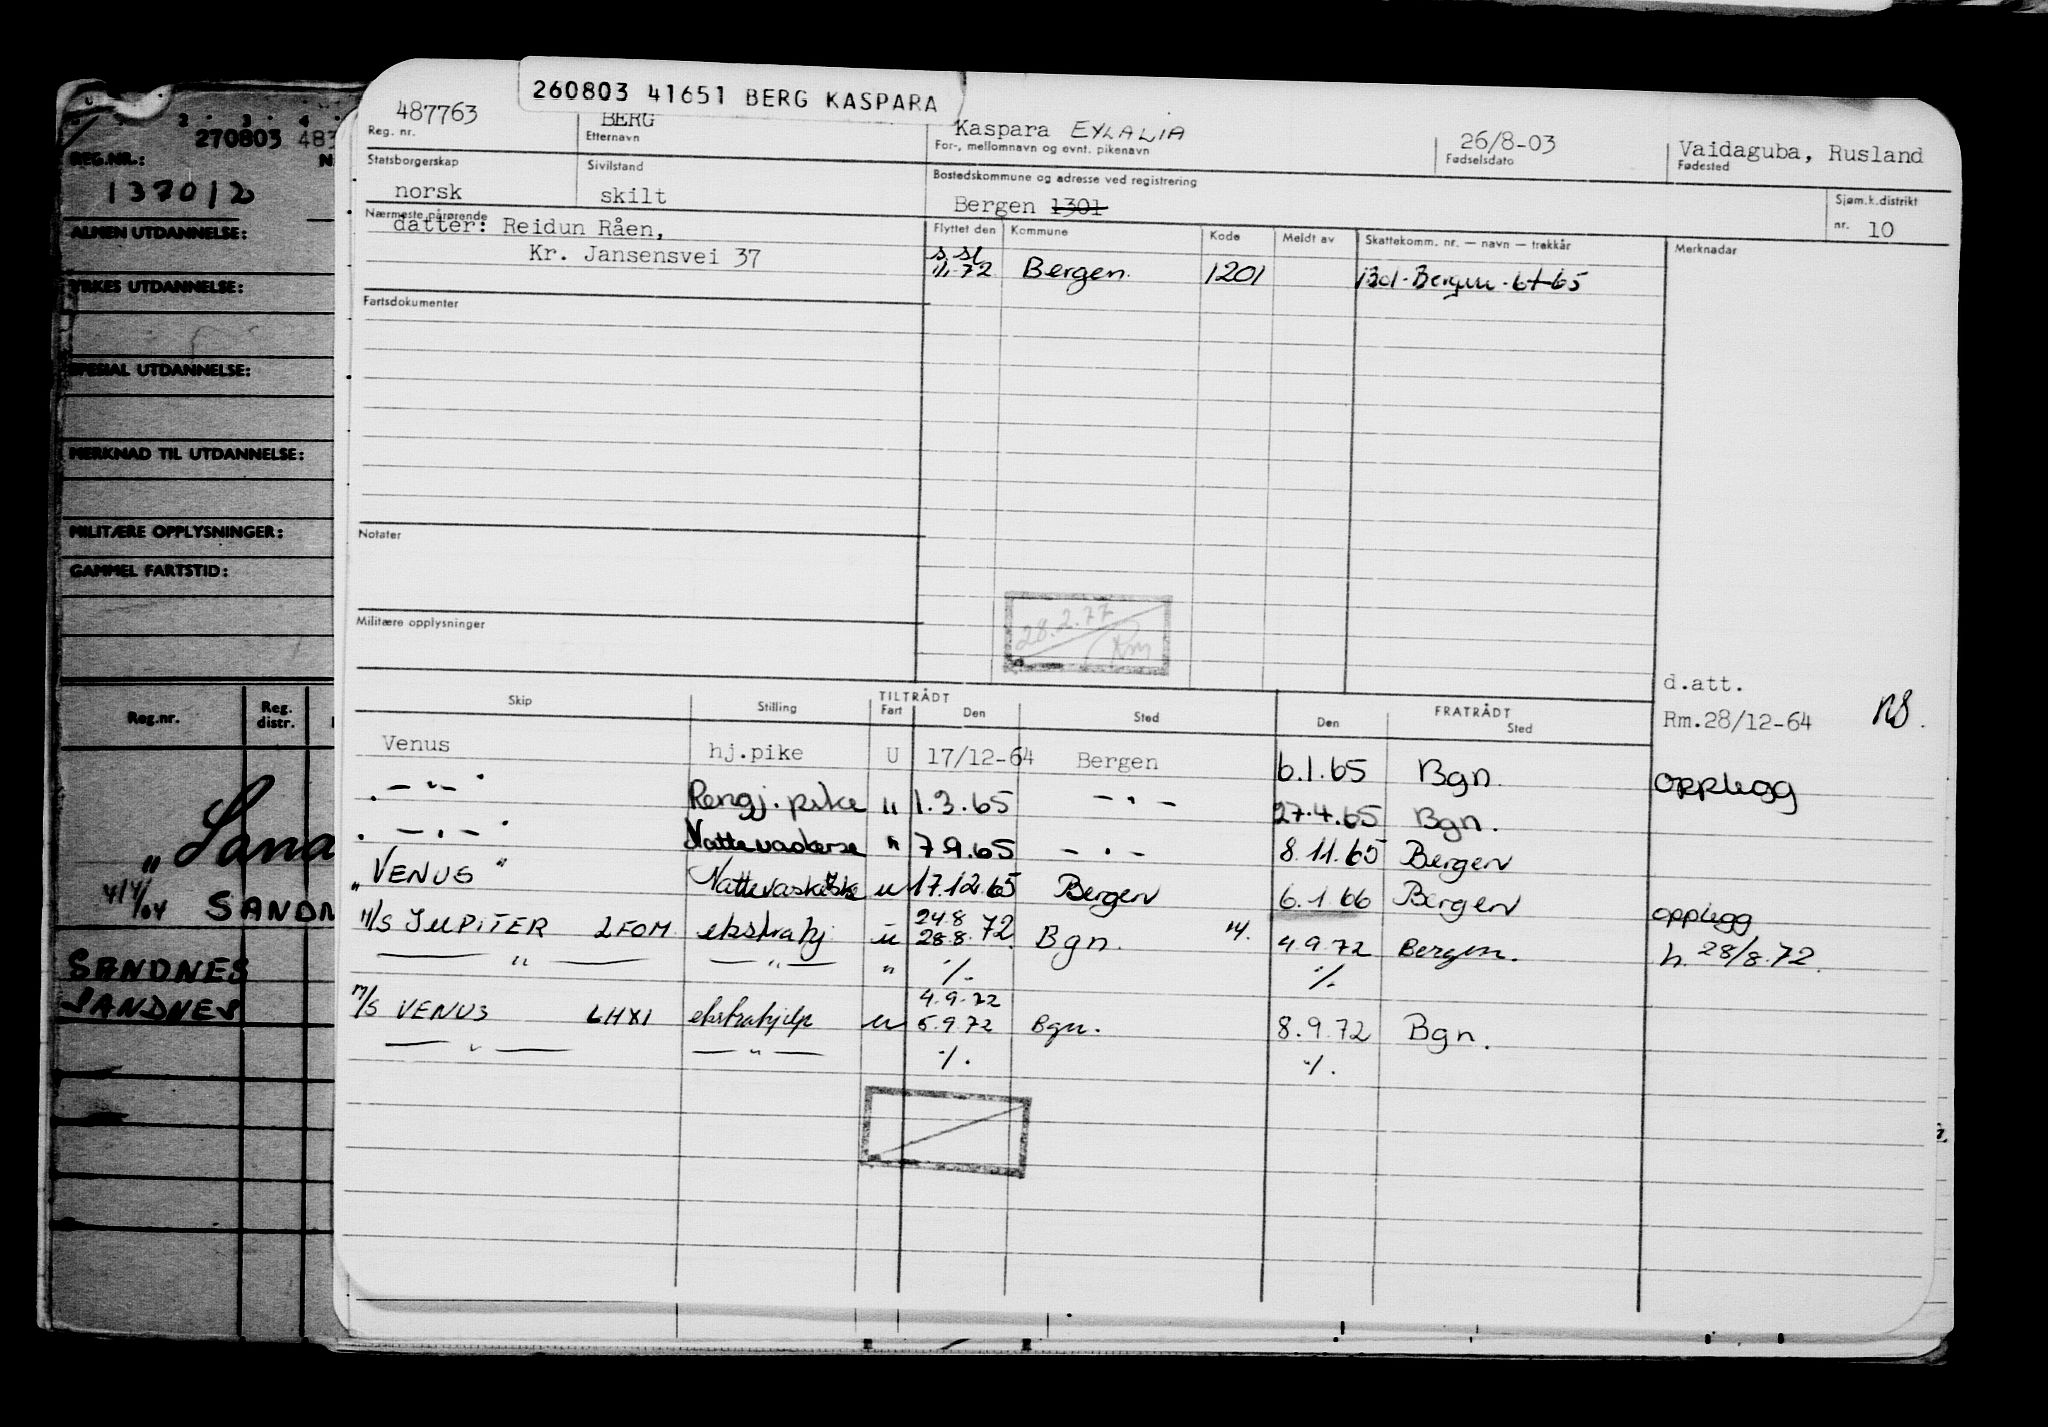 260803 41651 BERG KASPARA
487763 BERG Kaspara EYLALIA 26/8-03 Vaidaguba, Rusland
Reg. nr. Etternavn For-, mellomnavn og evnt. pikenavn Fødselsdato Fødested
Statsborgerskap Sivilstand Bostedskommune og adresse ved registrering Sjøm.k.distrikt
norsk skilt Bergen 1301 nr. 10
Nærmeste pårørende Flyttet den Kommune Kode Meldt av Skattekomm. nr. — navn — trekkår Merknader
datter: Reidun Råen,
Kr. Jansensvei 37
1/1.72 Bergen. 1201 Bergen
Fartsdokumenter
Notater
28.2.77
Militære opplysninger
d.att.
Rm.28/12-64
TILTRÅDT FRATRÅDT
Skip Stilling Fart Den Sted Den Sted
Venus hj.pike U 17/12-64 Bergen 6.1.65 Bgn. opplegg
— " — Rengj.pike " 1.3.65 — " — 27.4.65 Bgn.
— " — Nattevaskerske " 7.9.65 — " — 8.11.65 Bergen
"VENUS" Nattevaskerske u 17.12.65 Bergen 6.1.66 Bergen opplegg
24.8
M/S JUPITER LFOM ekstrahj u 28.8.72 Bgn. 4.9.72 Bergen. h. 28/8.72.
— " — — " — " ·/. ·/.
4.9.72
M/S VENUS LHXI ekstrahjelp u 5.9.72 Bgn. 8.9.72 Bgn.
— " — — " — ·/. ·/.
2 3 4
270803 483
REG.NR.: N
137012
ALMEN UTDANNELSE:
YRKES UTDANNELSE:
SPESIAL UTDANNELSE:
MERKNAD TIL UTDANNELSE:
MILITÆRE OPPLYSNINGER:
GAMMEL FARTSTID:
Reg.nr. Reg. distr.
"Sana
SANDN
SANDNES
SANDNES